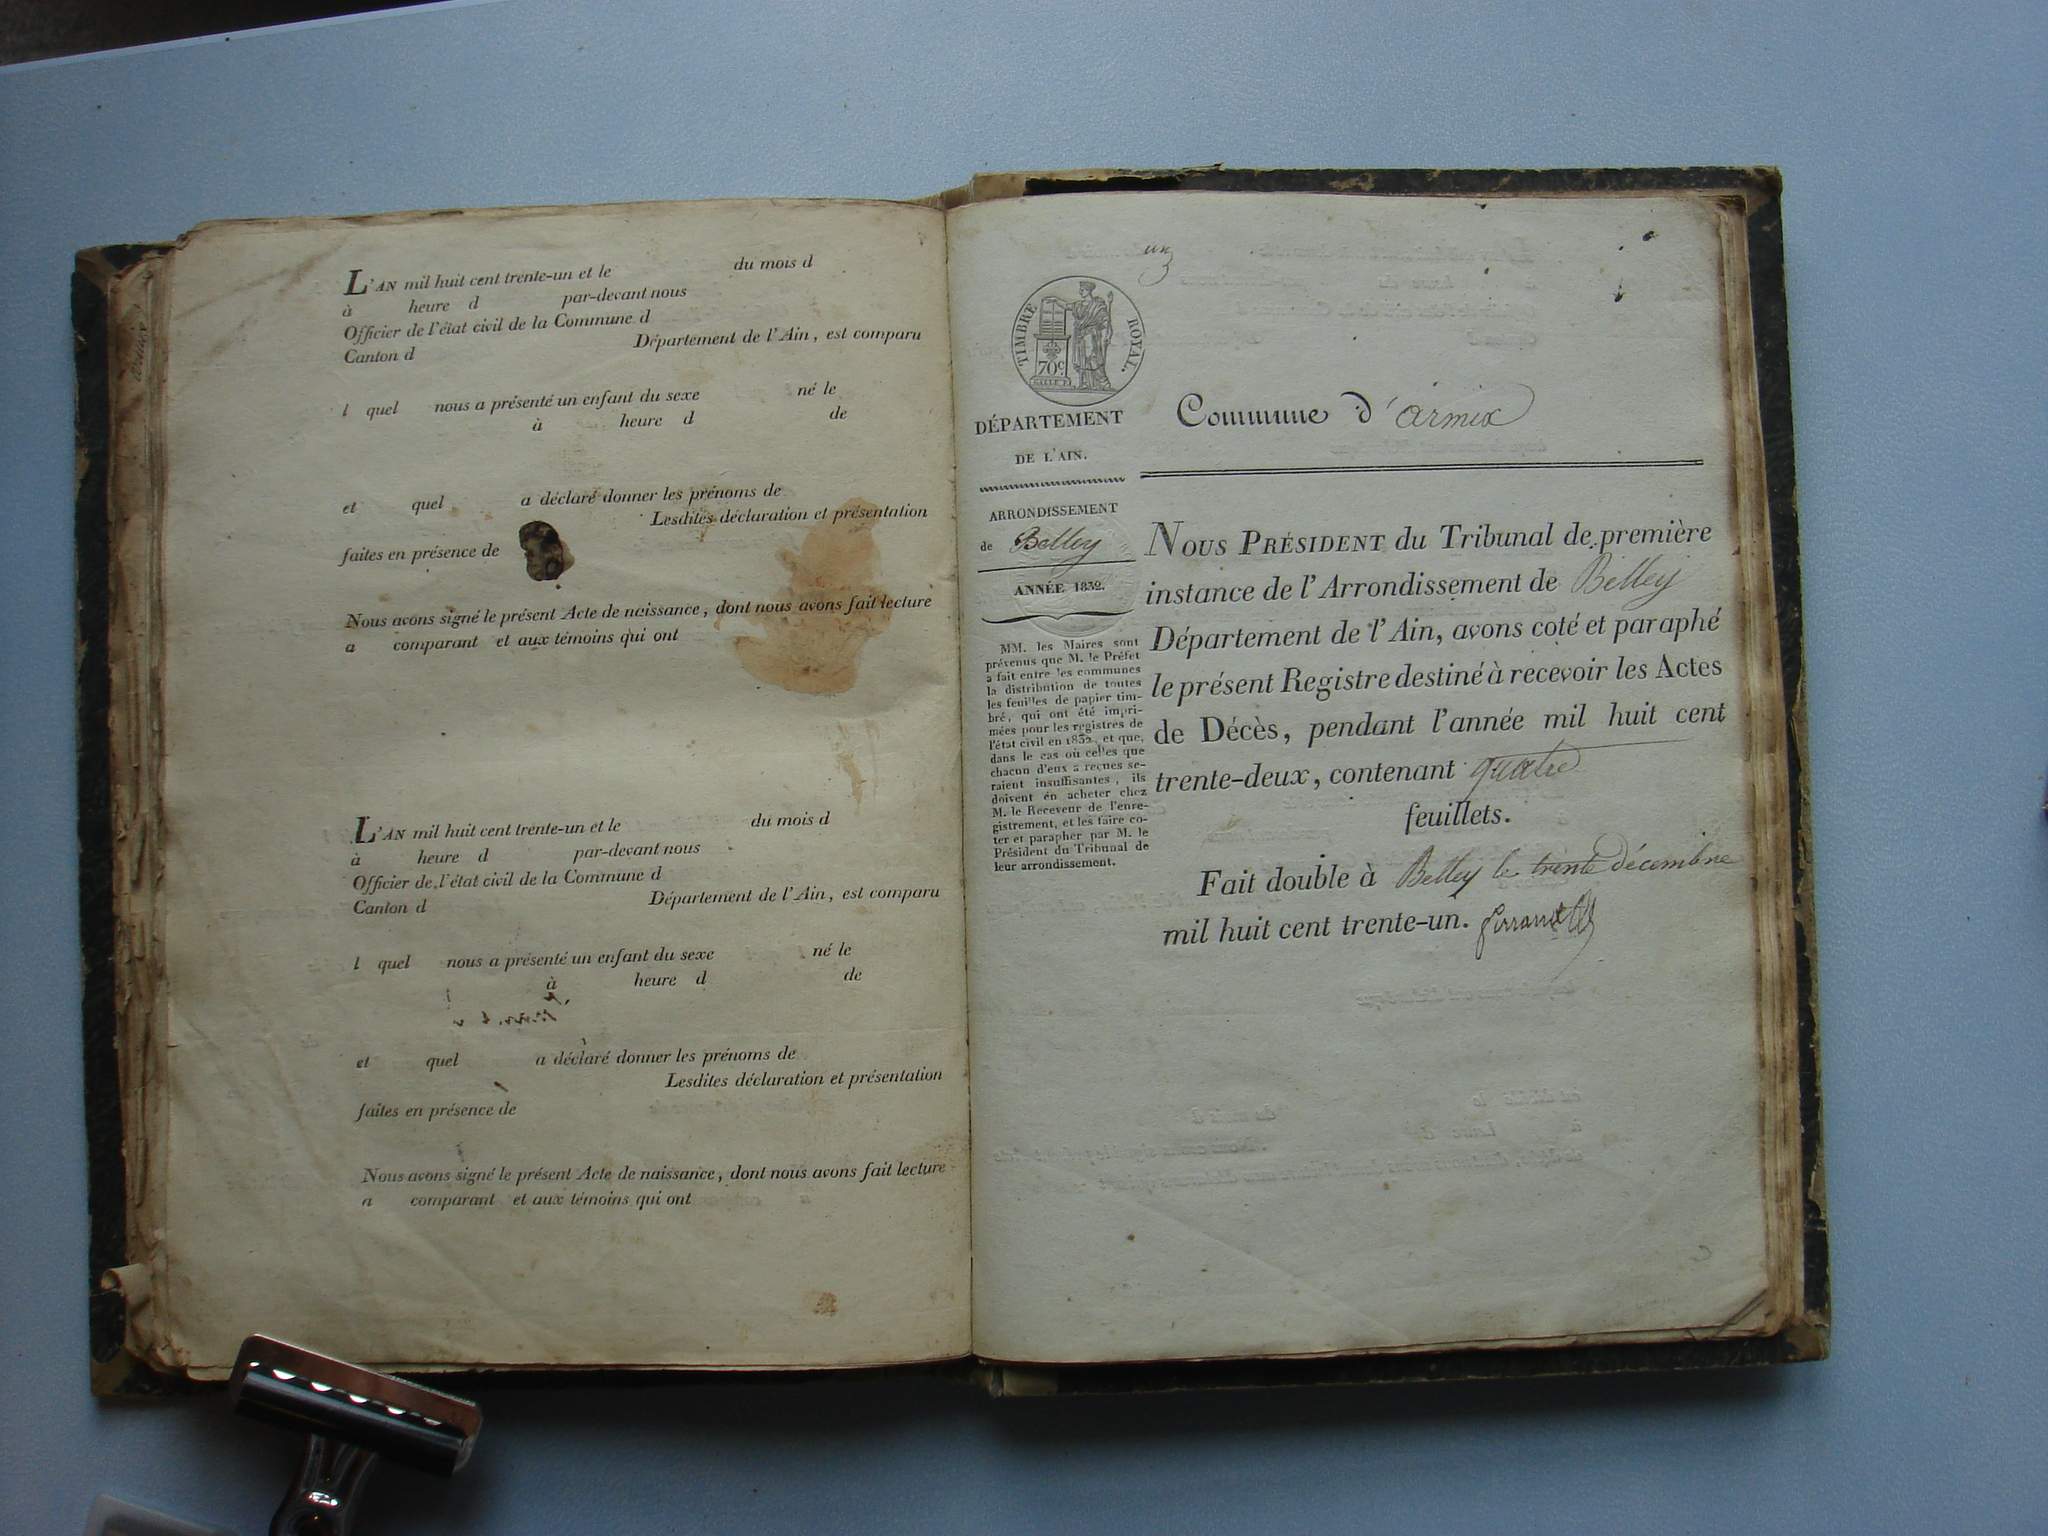 L'AN mil huit cent trente-un et le du mois d
à heure d par-devant nous
Officier de l'état civil de la Commune d
Canton d Département de l'Ain, est comparu
l quel nous a présenté un enfant du sexe né le
à heure d de
et quel a déclaré donner les prénoms de
Lesdites déclaration et présentation
faites en présence de
Nous avons signé le présent Acte de naissance, dont nous avons fait lecture
a comparant et aux témoins qui ont
L'AN mil huit cent trente-un et le du mois d
à heure d par-devant nous
Officier de l'état civil de la Commune d
Canton d Département de l'Ain, est comparu
l quel nous a présenté un enfant du sexe né le
à heure d de
et quel a déclaré donner les prénoms de
Lesdites déclaration et présentation
faites en présence de
Nous avons signé le présent Acte de naissance, dont nous avons fait lecture
a comparant et aux témoins qui ont
un
TIMBRE ROYAL.
70 c.
DÉPARTEMENT
DE L'AIN.
ARRONDISSEMENT
de Belley
ANNÉE 1832.
MM. les Maires sont
prévenus que M. le Préfet
a fait entre les communes
la distribution de toutes
les feuilles de papier tim-
bré, qui ont été impri-
mées pour les registres de
l'état civil en 1832, et que,
dans le cas où celles que
chacun d'eux a reçues se-
raient insuffisantes, ils
doivent en acheter chez
M. le Receveur de l'enre-
gistrement, et les faire co-
ter et parapher par M. le
Président du Tribunal de
leur arrondissement.
Commune d'armix
NOUS PRÉSIDENT du Tribunal de première
instance de l'Arrondissement de Belley
Département de l'Ain, avons coté et paraphé
le présent Registre destiné à recevoir les Actes
de Décès, pendant l'année mil huit cent
trente-deux, contenant quatre
feuillets.
Fait double à Belley le trente décembre
mil huit cent trente-un.